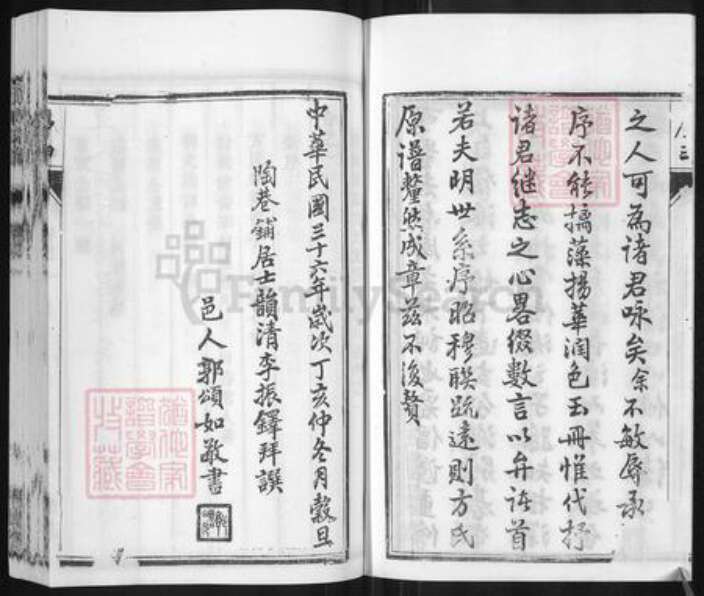 之人可為諸君咏矣余不敏辱承
序不能摛藻揚華潤色玉冊惟代抒
諸君继志之心畧綴數言以弁誌首
若夫明世系序昭穆聯踈遠則方氏
原谱釐然成章兹不復贅
中華民國三十六年歲次丁亥仲冬月穀旦
陶巷鋪居士韻清李振鐸拜譔
邑人郭頌如敬書
FamilySearch